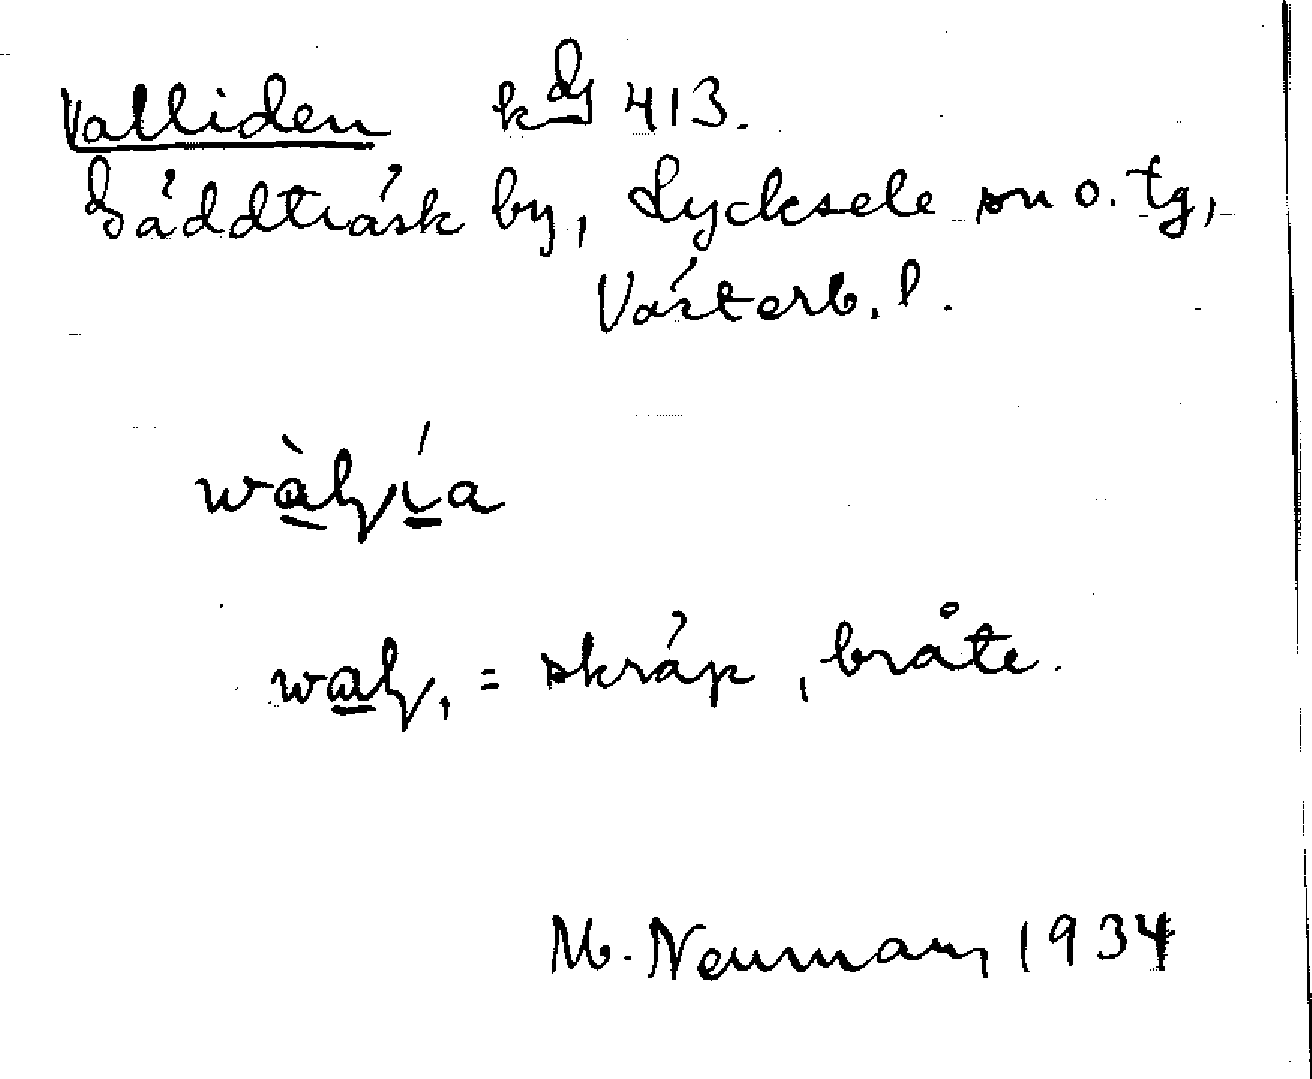 Valliden kḏg 413.
Gäddträsk by, Lycksele sn o. tg,
Västerb. l.
= skräp, bråte.
M. Neuman, 1934